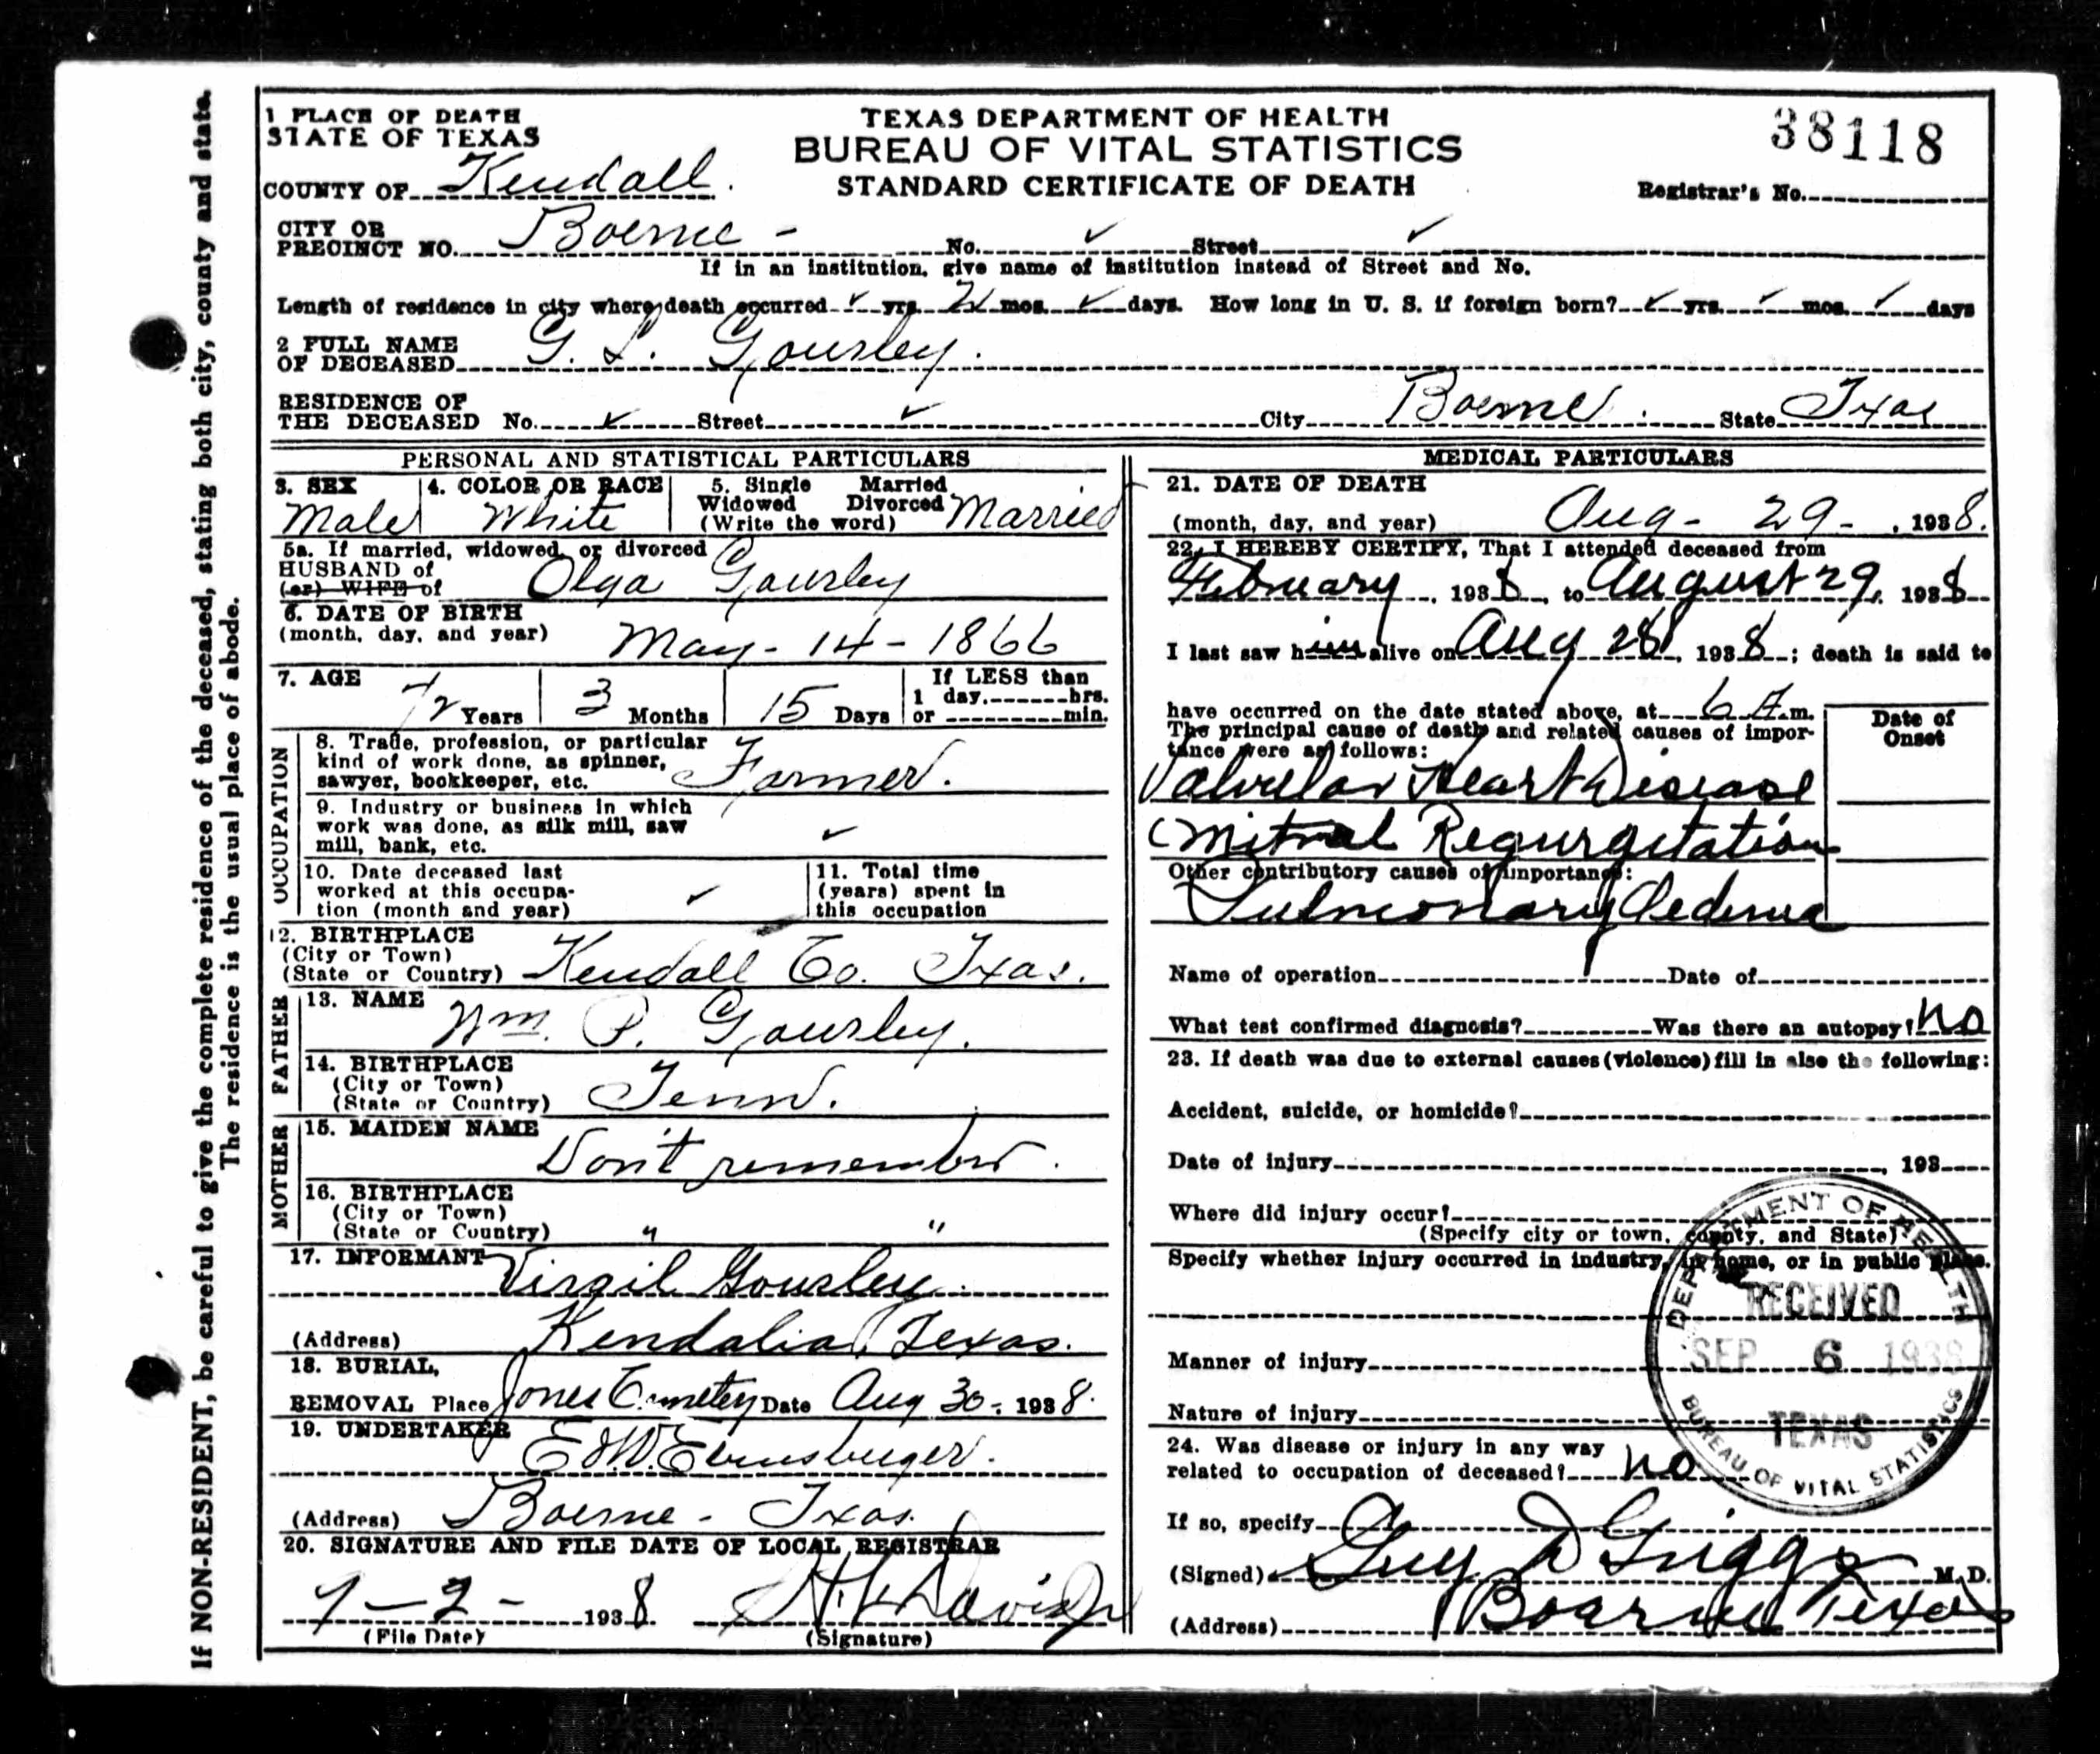 If NON-RESIDENT, be careful to give the complete residence of the deceased, stating both city, county and state.
The residence is the usual place of abode.
1 PLACE OF DEATH
STATE OF TEXAS
COUNTY OF Kendall.
TEXAS DEPARTMENT OF HEALTH
BUREAU OF VITAL STATISTICS
STANDARD CERTIFICATE OF DEATH
38118
Registrar's No.
CITY OR
PRECINCT NO. Boerne - No. ✓ Street ✓
If in an institution, give name of institution instead of Street and No.
Length of residence in city where death occurred ✓ yrs. mos. ✓ days. How long in U. S. if foreign born? ✓ yrs. ✓ mos. ✓ days
2 FULL NAME
OF DECEASED G. L. Gourley.
RESIDENCE OF
THE DECEASED No. ✓ Street ✓ City Boerne. State Texas
PERSONAL AND STATISTICAL PARTICULARS
3. SEX
Male
4. COLOR OR RACE
White
5. Single Married
Widowed Divorced
(Write the word) Married
5a. If married, widowed, or divorced
HUSBAND of
(or) WIFE of Olga Gourley
6. DATE OF BIRTH
(month, day, and year) May - 14 - 1866
7. AGE 72 Years 3 Months 15 Days
If LESS than
1 day, hrs.
or min.
OCCUPATION
8. Trade, profession, or particular
kind of work done, as spinner,
sawyer, bookkeeper, etc. Farmer.
9. Industry or business in which
work was done, as silk mill, saw
mill, bank, etc. ✓
10. Date deceased last
worked at this occupa-
tion (month and year) ✓
11. Total time
(years) spent in
this occupation
12. BIRTHPLACE
(City or Town)
(State or Country) Kendall Co. Texas.
FATHER
13. NAME Wm. P. Gourley.
14. BIRTHPLACE
(City or Town)
(State or Country) Tenn.
MOTHER
15. MAIDEN NAME Don't remember.
16. BIRTHPLACE
(City or Town)
(State or Country) " "
17. INFORMANT Virgil Gourley.
(Address) Kendalia, Texas.
18. BURIAL,
REMOVAL Place Jones Cemetery Date Aug 30, 1938.
19. UNDERTAKER Ed W. Ebensberger.
(Address) Boerne - Texas.
20. SIGNATURE AND FILE DATE OF LOCAL REGISTRAR
9-2- 1938
(File Date) (Signature)
MEDICAL PARTICULARS
21. DATE OF DEATH
(month, day, and year) Aug - 29 - , 1938.
22. I HEREBY CERTIFY, That I attended deceased from
February, 1938, to August 29, 1938
I last saw him alive on Aug 28, 1938; death is said to
have occurred on the date stated above, at 6 A.m.
The principal cause of death and related causes of impor-
tance were as follows:
Date of
Onset
Valvular Heart Disease
Mitral Regurgitation
Other contributory causes of importance:
Pulmonary Oedema
Name of operation Date of
What test confirmed diagnosis? Was there an autopsy? No
23. If death was due to external causes (violence) fill in also the following:
Accident, suicide, or homicide?
Date of injury , 193
Where did injury occur?
(Specify city or town, county, and State)
Specify whether injury occurred in industry, in home, or in public place.
Manner of injury
Nature of injury
24. Was disease or injury in any way
related to occupation of deceased? No
If so, specify
(Signed) Guy D Griggs M. D.
(Address) Boerne Texas
DEPARTMENT OF HEALTH
RECEIVED
SEP 6 1938
TEXAS
BUREAU OF VITAL STATISTICS